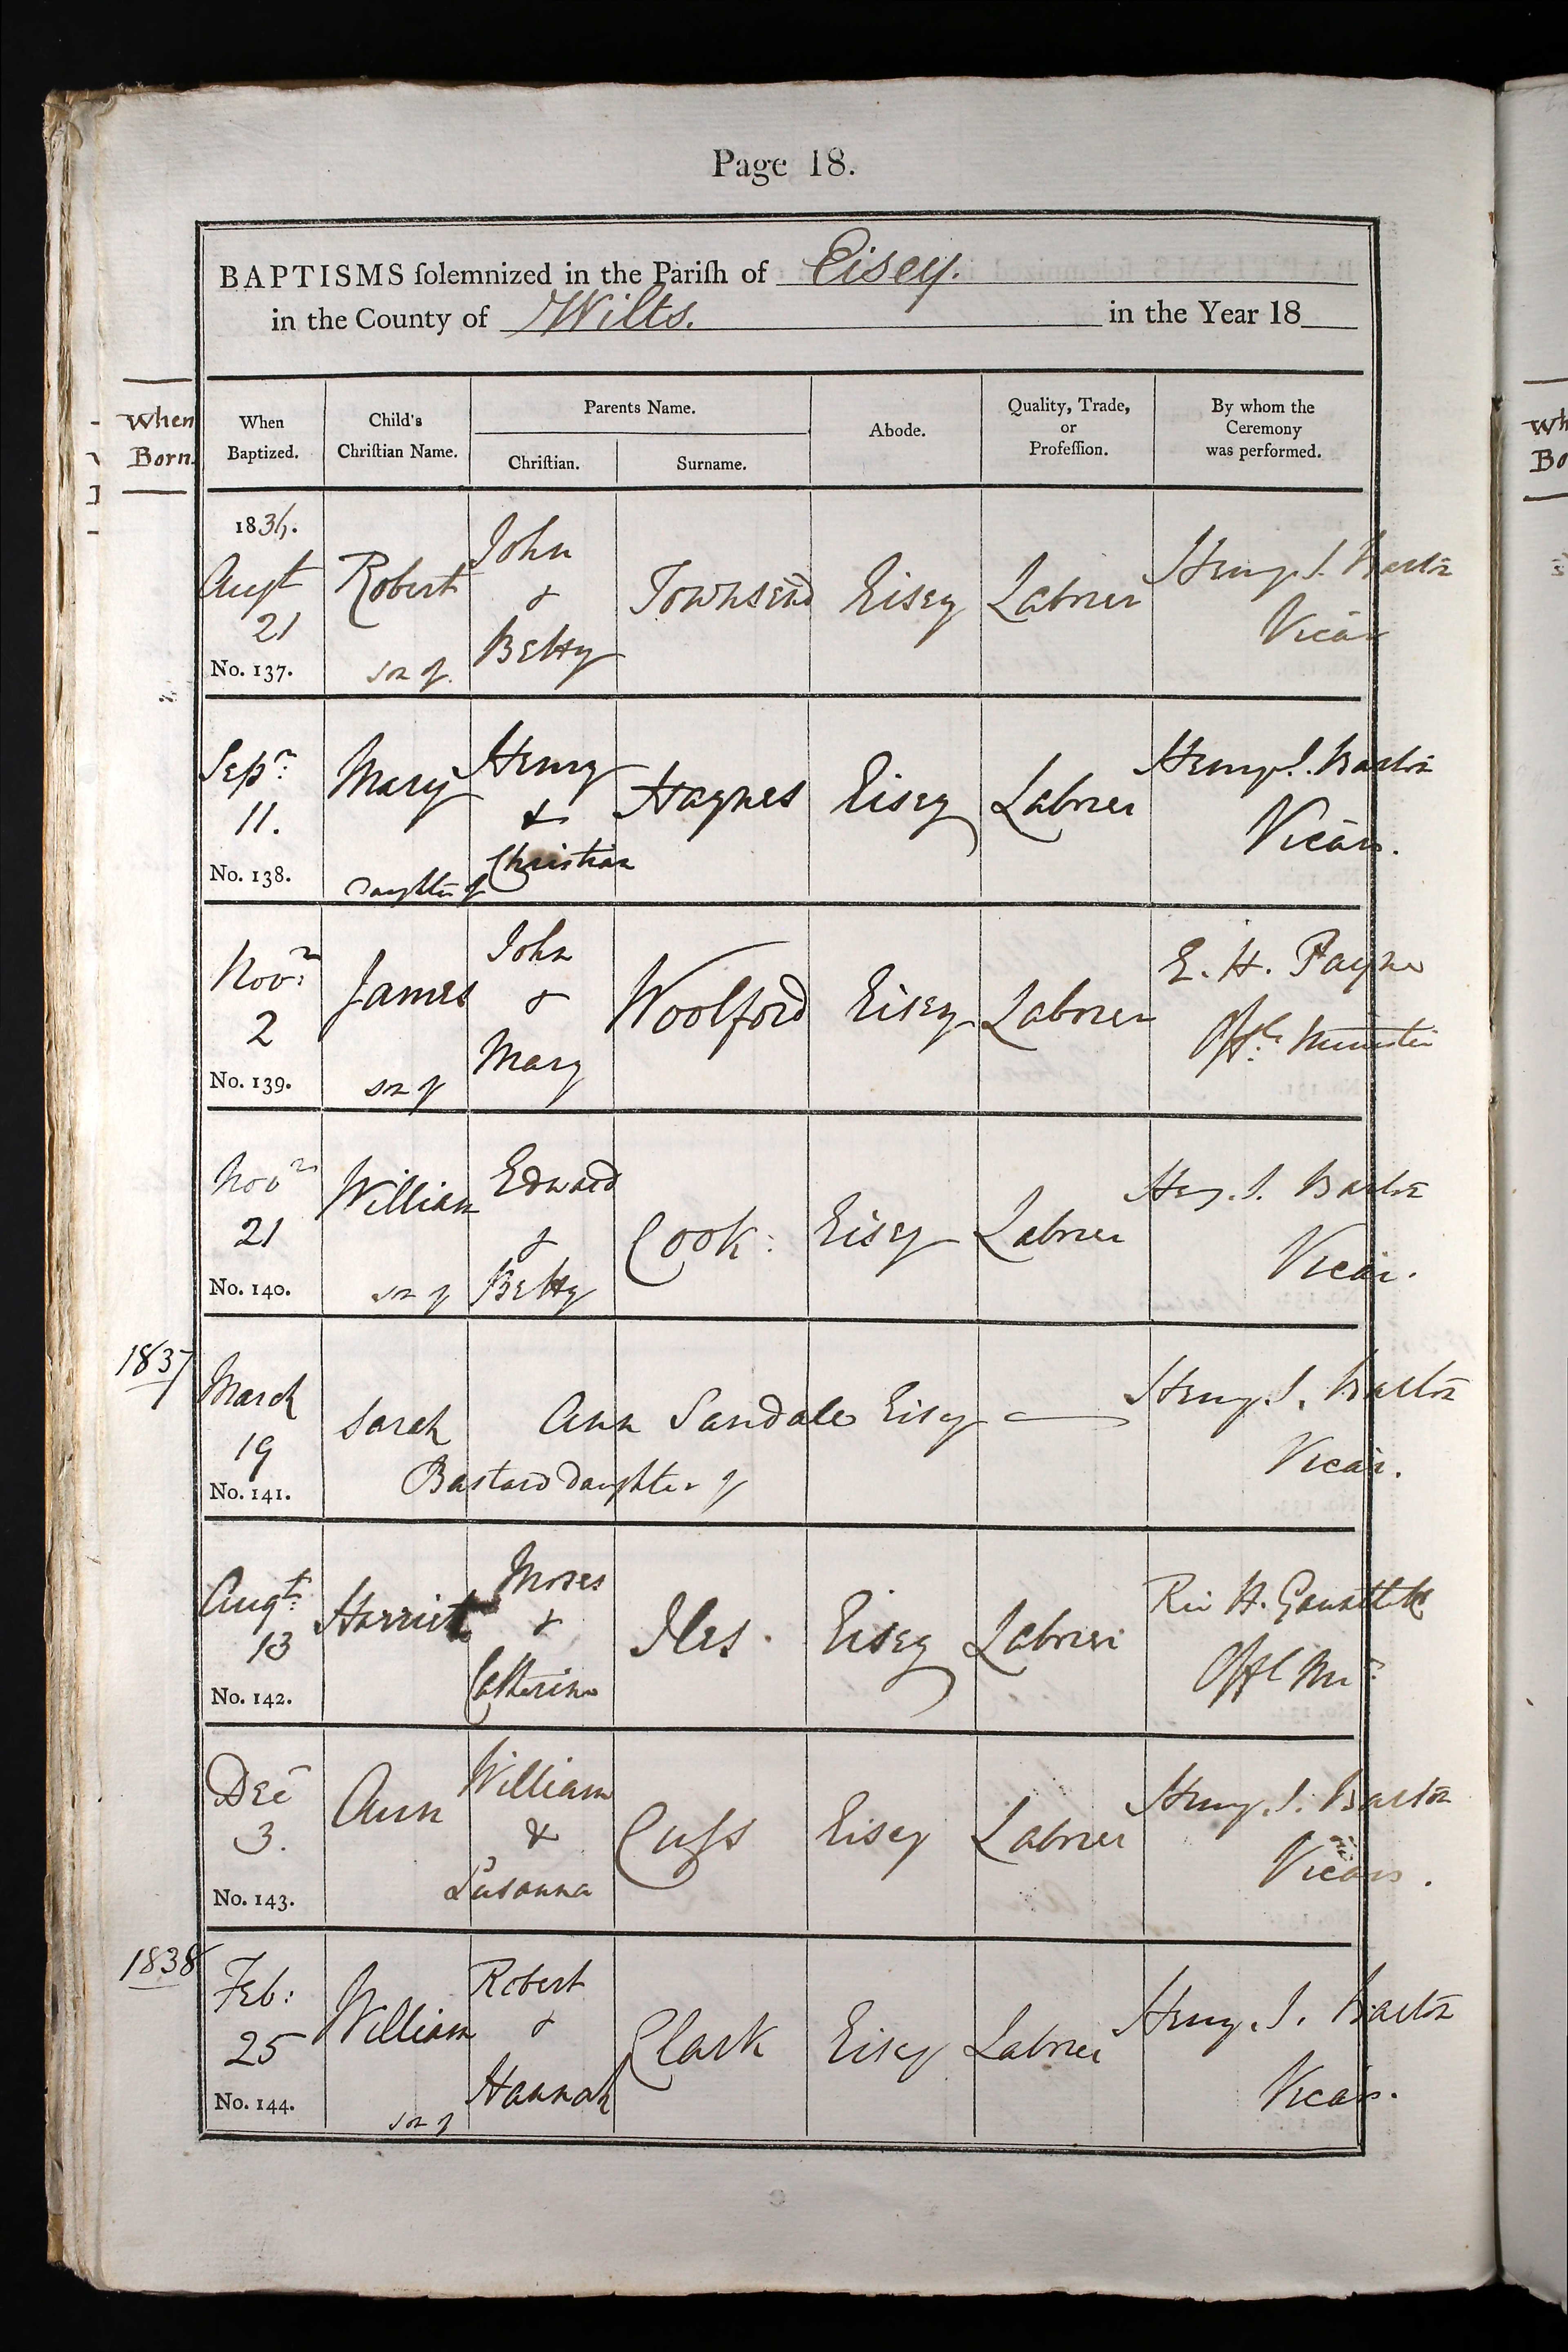 Page 18.
BAPTISMS ſolemnized in the Pariſh of Eisey.
in the County of Wilts. in the Year 18
When Born.
When Baptized.
Child's Chriſtian Name.
Parents Name.
Chriſtian.
Surname.
Abode.
Quality, Trade, or Profeſſion.
By whom the Ceremony was performed.
1836.
Augt 21
No. 137.
Robert
son of
John & Betty
Townsend
Eisey
Labrer
Henry J. Barton
Vicar
Sepr. 11.
No. 138.
Mary
Daughter of
Henry & Christian
Haynes
Eisey
Labrer
Henry J. Barton
Vicar.
Novr. 2
No. 139.
James
son of
John & Mary
Woolford
Eisey
Labrer
E. H. Payne
Offg. Minister
Novr 21
No. 140.
William
son of
Edward & Betty
Cook.
Eisey
Labrer
Hen. J. Barton
Vicar.
1837
March 19
No. 141.
Sarah
Bastard daughter of
Ann Sandale
Eisey
Henry J. Barton
Vicar.
Augt. 13
No. 142.
Harriet
Moses & Catherine
Iles.
Eisey
Labrer
Rev H.
Offg Mr.
Dec 3.
No. 143.
Ann
William & Susanna
Cuss
Eisey
Labrer
Henry J. Barton
Vicar.
1838
Feb: 25
No. 144.
William
son of
Robert & Hannah
Clark
Eisey
Labrer
Henry J. Barton
Vicar.
Wh
Bo